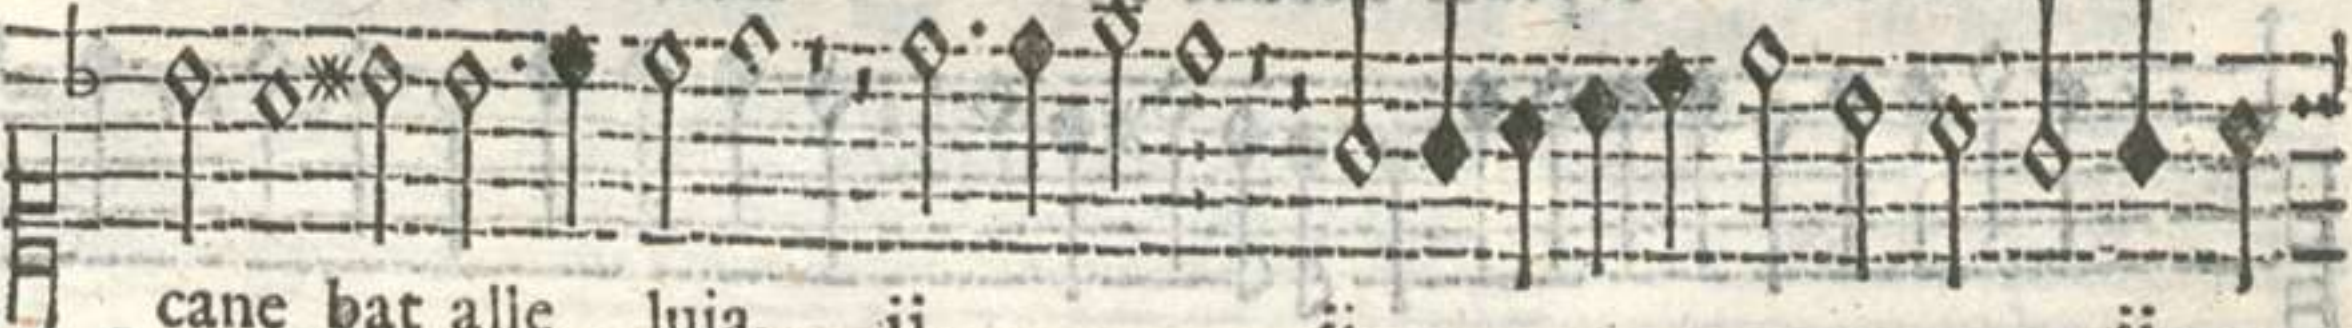 cane bat alle luia ij ij ij